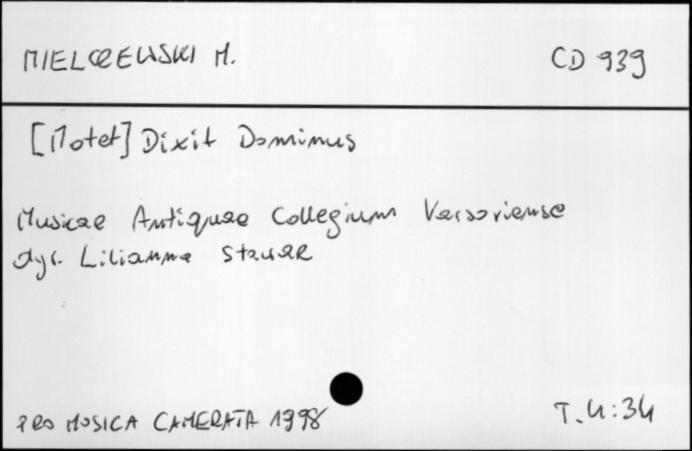 MIELCZEWSKI M.
CD 939
[Motet] Dixit Dominus
Musicae Antiquae Collegium Varsoviense
dyr. Lilianna Stawarz
PRO MUSICA CAMERATA 1998
T. 4:34